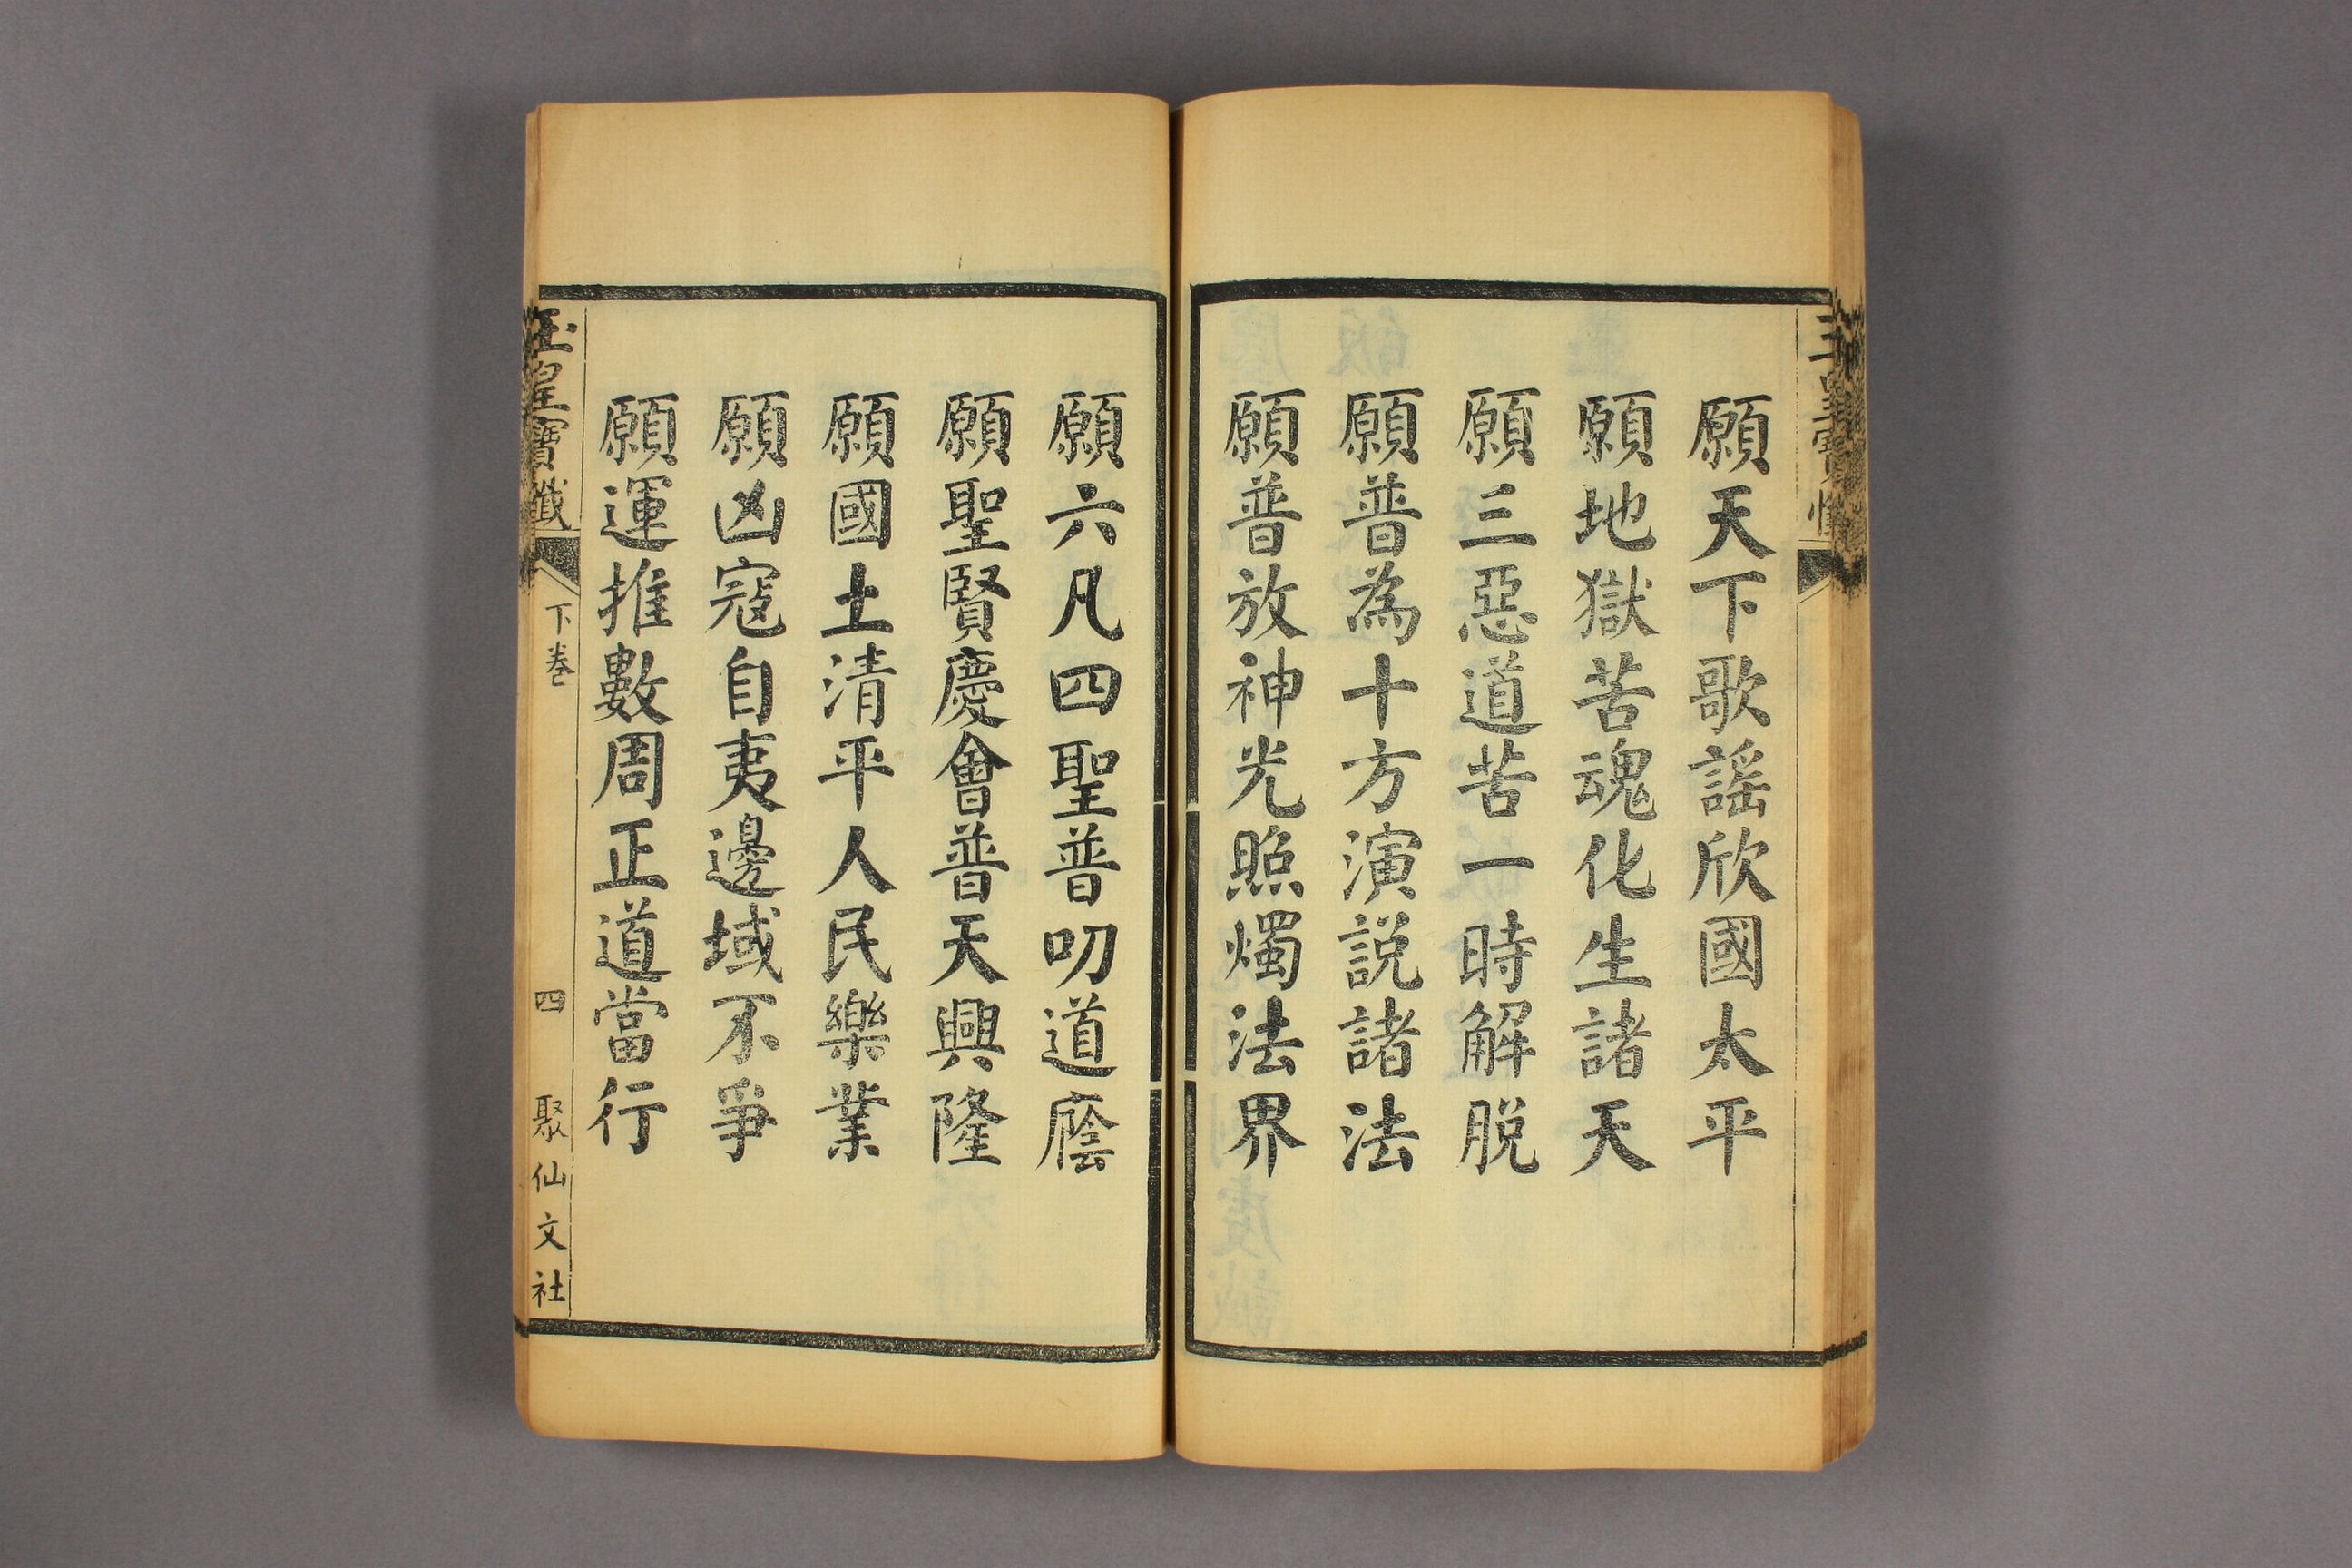 願天下歌謠欣國太平
願地獄苦魂化生諸天
願三惡道苦一時解脫
願普為十方演説諸法
願普放神光照燭法界
願六凡四聖普叨道廕
願聖賢慶會普天興隆
願國土清平人民樂業
願凶寇自夷邊域不爭
願運推數周正道當行
玉皇寶懺
下卷
四
聚仙文社